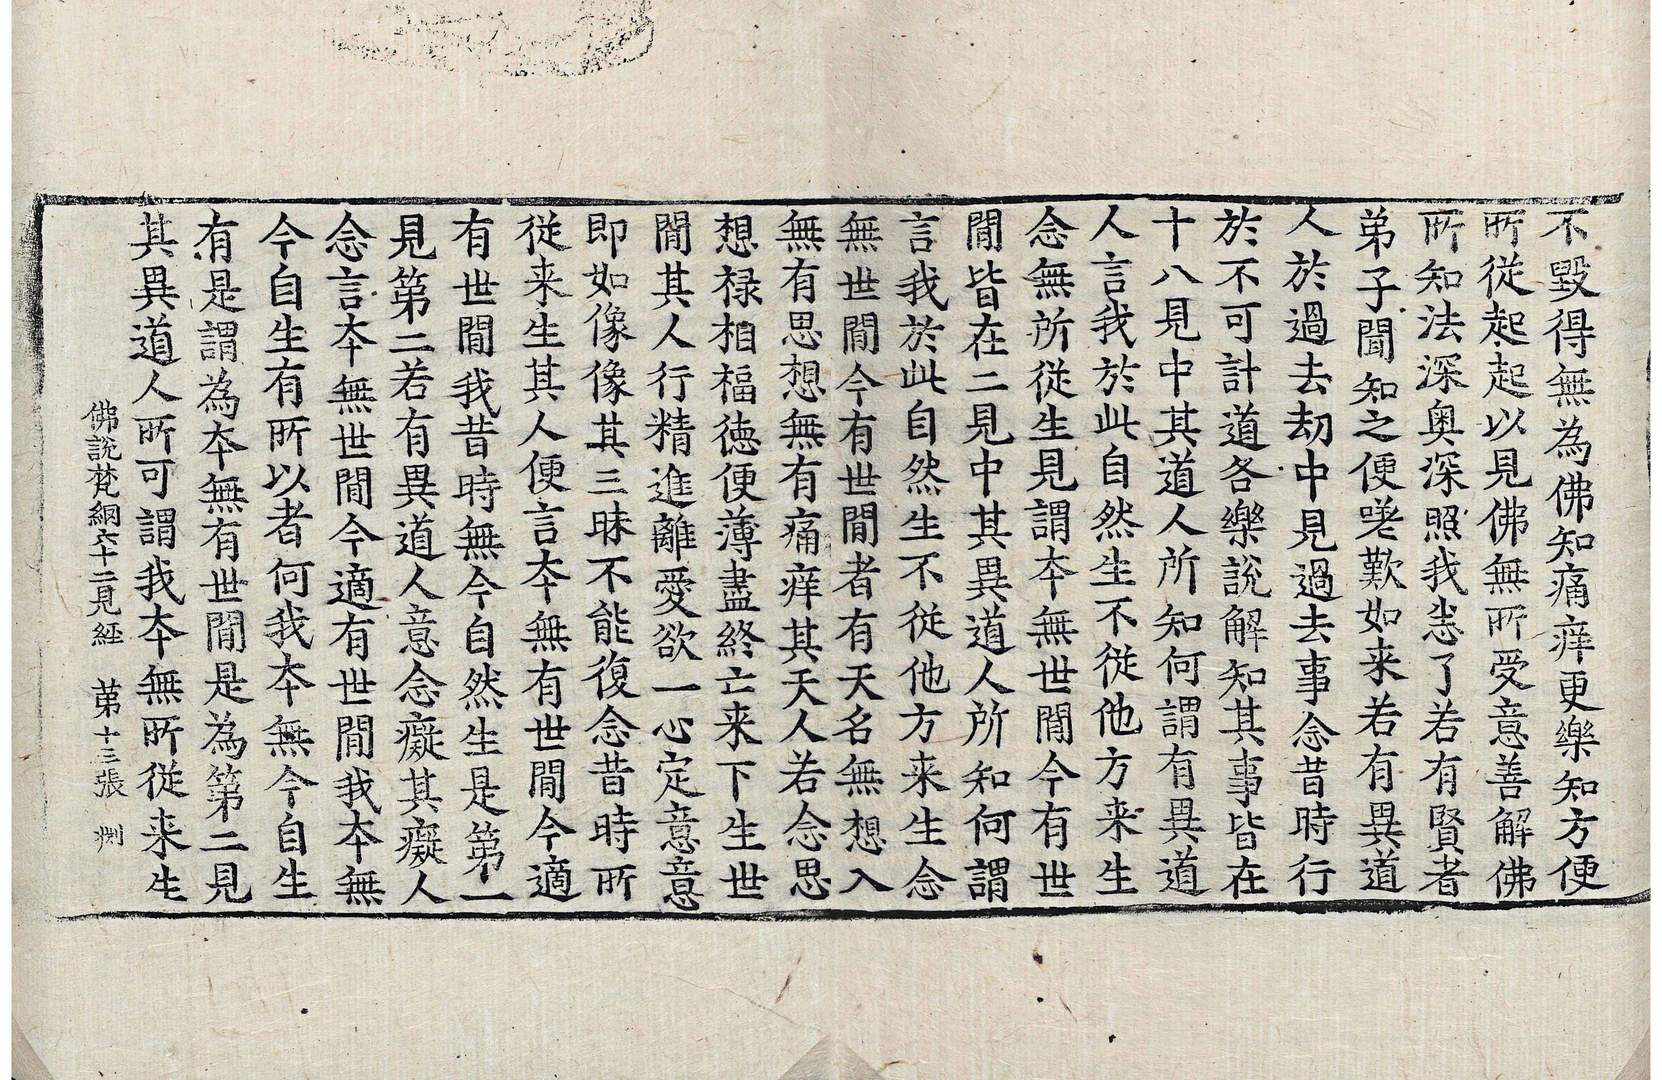 不毀得無為佛知痛痒更樂知方便
所從起起以見佛無所受意善解佛
所知法深奧深照我悉了若有賢者
弟子聞知之便嗟歎如来若有異道
人於過去劫中見過去事念昔時行
於不可計道各樂說解知其事皆在
十八見中其道人所知何謂有異道
人言我於此自然生不從他方来生
念無所從生見謂夲無世閒今有世
閒皆在二見中其異道人所知何謂
言我於此自然生不從他方来生念
無世閒今有世閒者有天名無想入
無有思想無有痛痒其天人若念思
想禄相福徳便薄盡終亡来下生世
閒其人行精進離愛欲一心定意意
即如像像其三昧不能復念昔時所
從来生其人便言夲無有世閒今適
有世閒我昔時無今自然生是第一
見第二若有異道人意念癡其癡人
念言夲無世閒今適有世閒我夲無
今自生有所以者何我夲無今自生
有是謂為夲無有世閒是為第二見
其異道人所可謂我夲無所從来生
佛說梵綱六十二見經 苐十三張 㓼